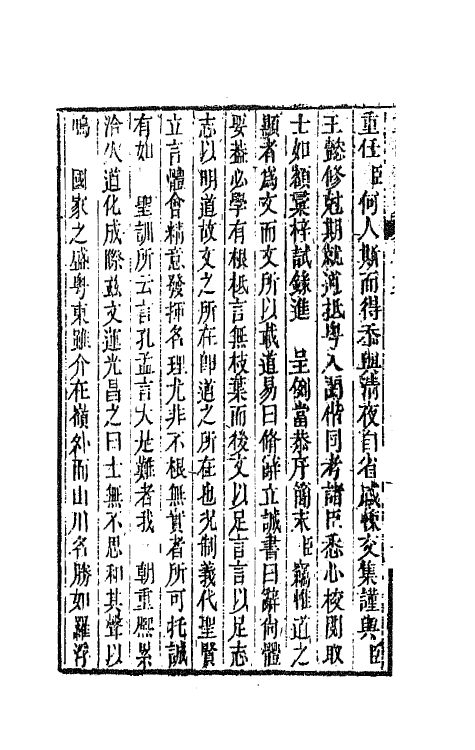 重任臣何人斯而得忝與清夜自省感悚交集謹與臣
王懿修尅期就道抵粵入闈偕同考諸臣悉心校閱取
士如額彙梓試錄進 呈例當恭序簡末臣竊惟道之
顯者為文而文所以載道易曰脩辭立誠書曰辭尚體
要蓋必學有根柢言無枝葉而後文以足言言以足志
志以明道故文之所在卽道之所在也況制義代聖賢
立言體會精意發揮名理尤非不根無實者所可托誠
有如 聖訓所云言孔孟言大是難者我 朝重熙累
洽久道化成際玆文運光昌之日士無不思和其聲以
鳴 國家之盛粵東雖介在嶺外而山川名勝如羅浮